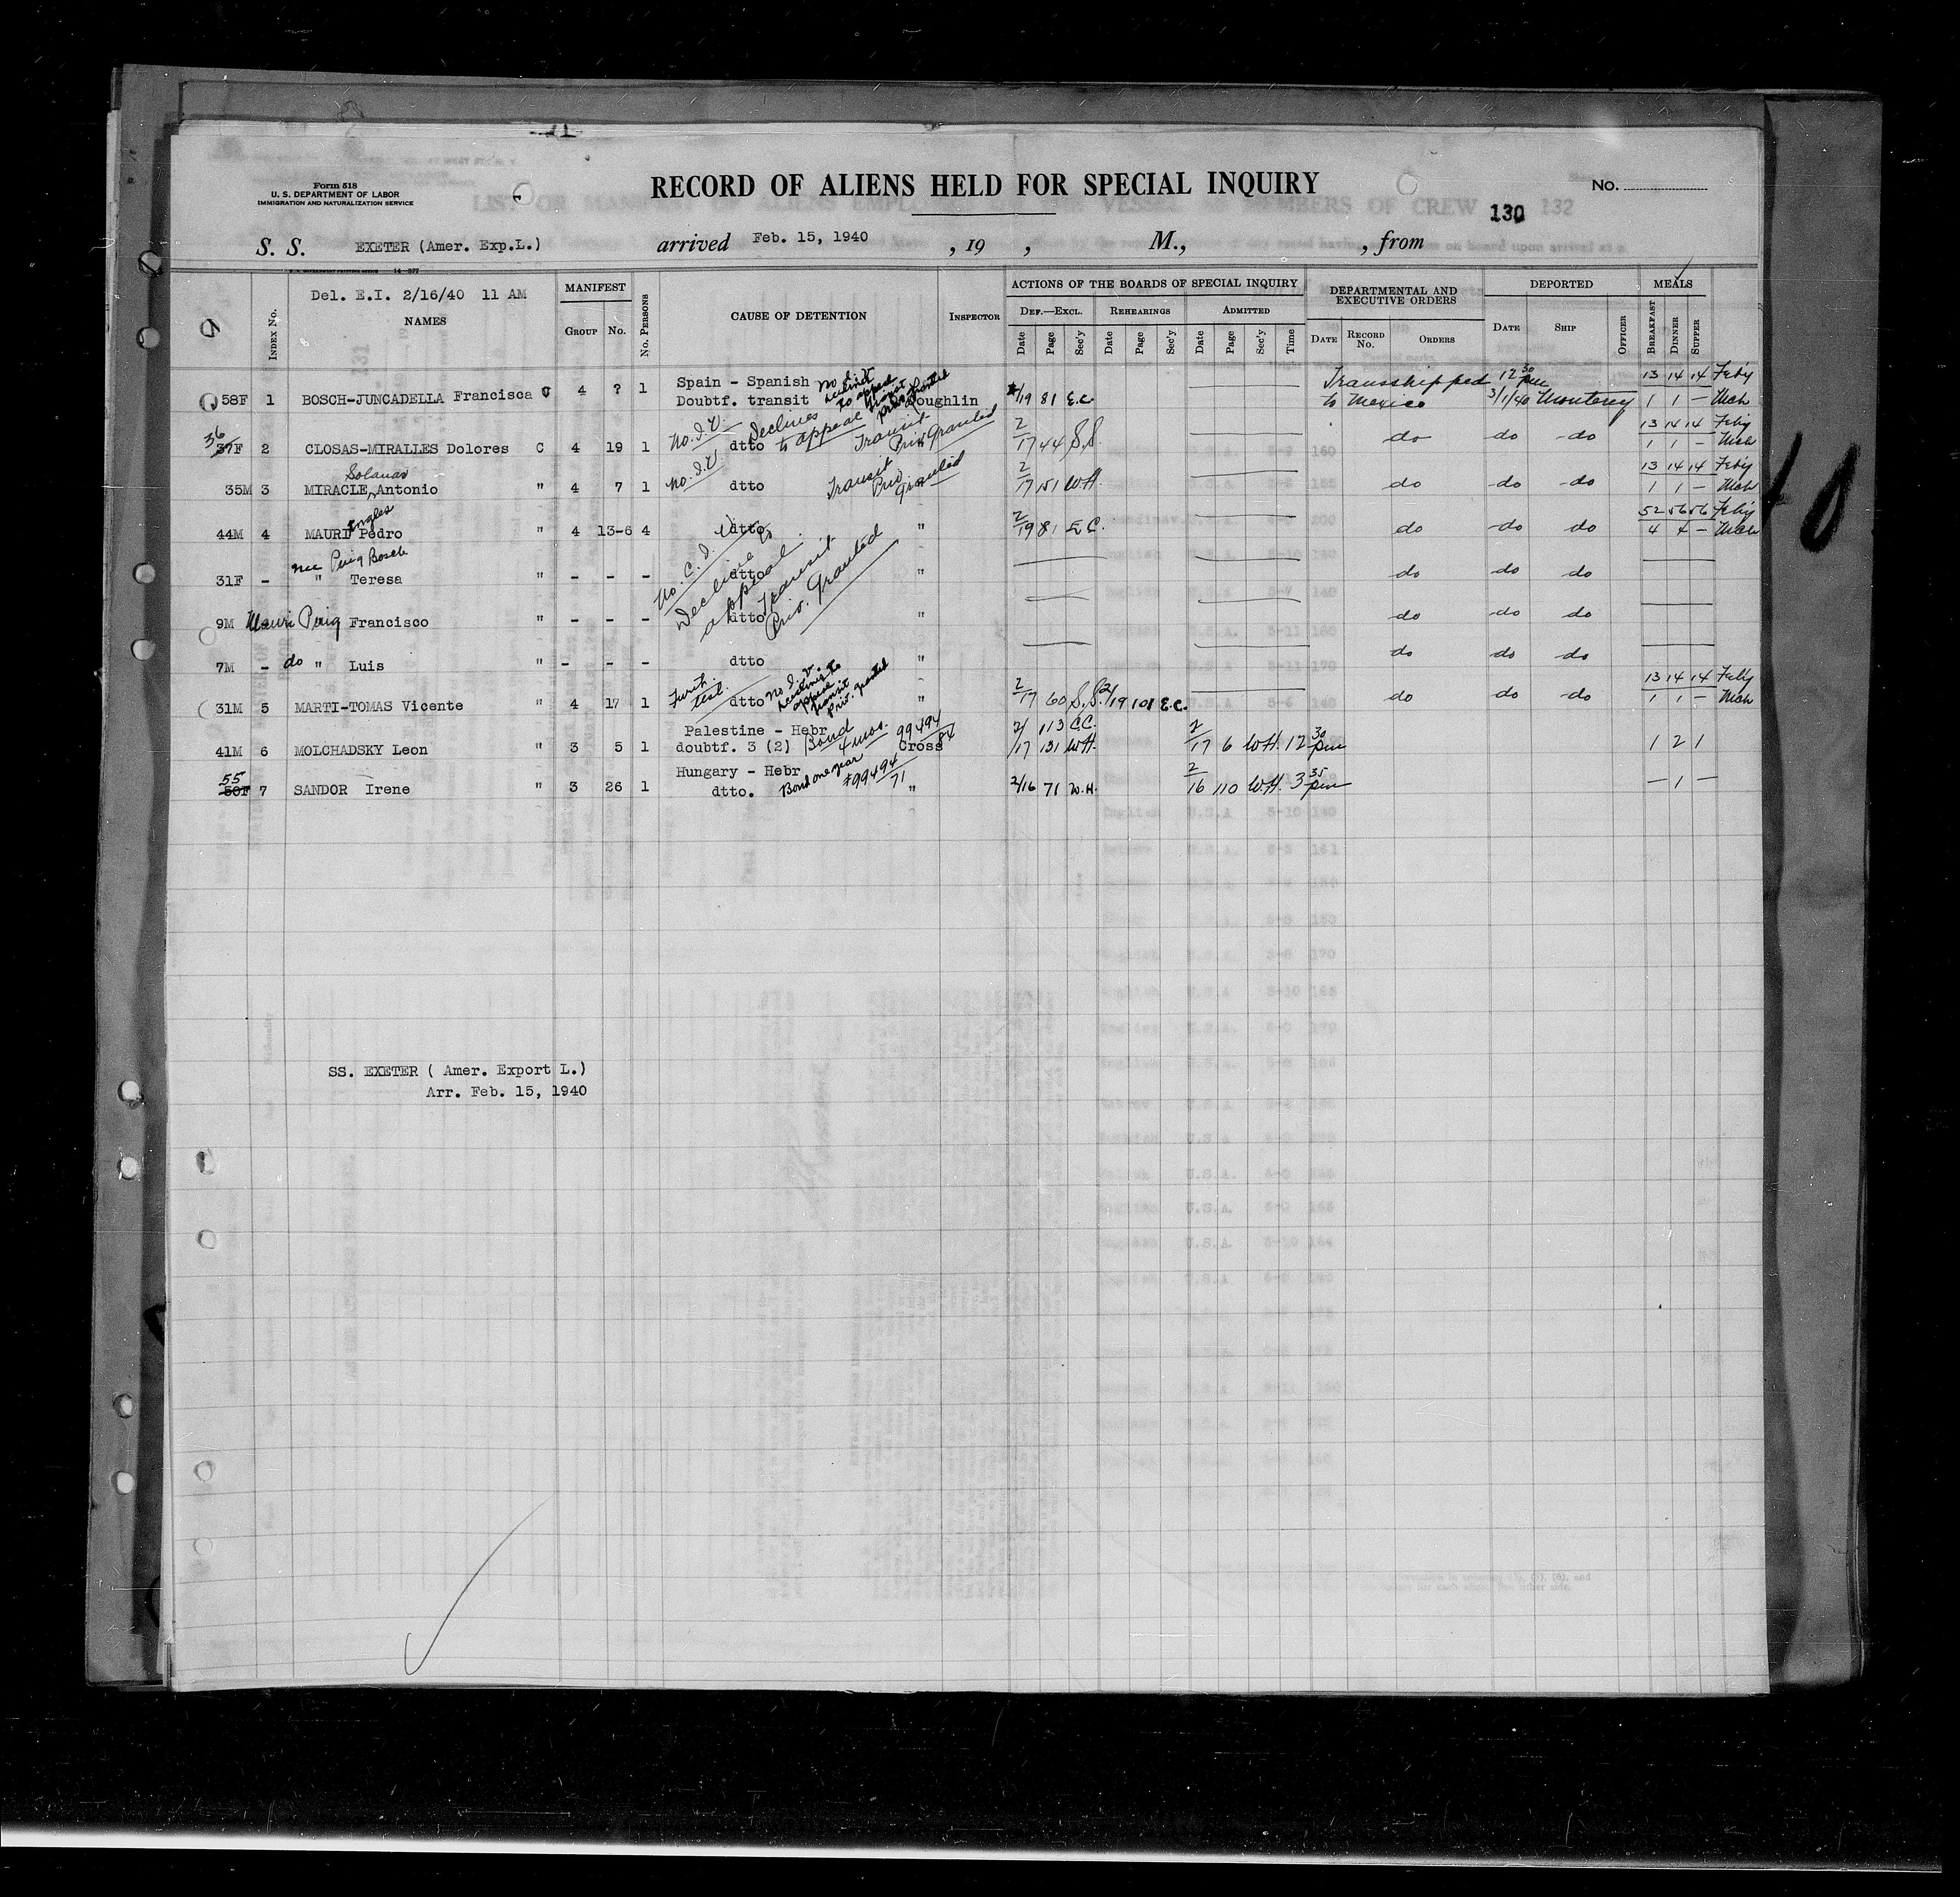 Form 518
U. S. DEPARTMENT OF LABOR
IMMIGRATION AND NATURALIZATION SERVICE
RECORD OF ALIENS HELD FOR SPECIAL INQUIRY
No.
130 132
S. S. EXETER (Amer. Exp.L.) arrived Feb. 15, 1940 , 19 , M., , from
Del. E.I. 2/16/40 11 AM
INDEX No. NAMES MANIFEST GROUP No. No. PERSONS CAUSE OF DETENTION INSPECTOR
ACTIONS OF THE BOARDS OF SPECIAL INQUIRY
DEF.—EXCL. REHEARINGS ADMITTED
Date Page Sec'y Date Page Sec'y Date Page Sec'y Time
DEPARTMENTAL AND EXECUTIVE ORDERS
DATE RECORD No. ORDERS
DEPORTED
DATE SHIP OFFICER
MEALS
BREAKFAST DINNER SUPPER
Spain - Spanish No I.V. 13 14 14 Feby
58F 1 BOSCH-JUNCADELLA Francisca C 4 ? 1 Doubtf. transit declines to appeal transit priv. granted Loughlin 2/19 81 E.C. Transshipped to Mexico 12 30 pm 3/1/40 Monterey 1 1 - Mch
13 14 14 Feby
36 37F 2 CLOSAS-MIRALLES Dolores C 4 19 1 No. I.V. dtto Declines to appeal Transit Priv. Granted " 2/17 44 S.S. do do do 1 1 - Mch
Solanas 13 14 14 Feby
35M 3 MIRACLE, Antonio " 4 7 1 No. I.V. dtto Transit Priv. Granted " 2/17 151 W.H. do do do 1 1 - Mch
Angles 52 56 56 Feby
44M 4 MAURI Pedro " 4 13-6 4 dtto " 2/19 81 E.C. do do do 4 4 - Mch
nee Puig Bosch
31F - " Teresa " - - - dtto " do do do
Decline appeal. Transit Priv. Granted
9M - Mauri Puig Francisco " - - - dtto " do do do
7M - do " Luis " - - - dtto " do do do
13 14 14 Feby
31M 5 MARTI-TOMAS Vicente " 4 17 1 Furth. test. dtto No I.V. declines to appeal transit priv. granted " 2/17 60 S.S. 2/19 101 E.C. do do do 1 1 - Mch
Palestine - Hebr Bond 4 mos. 99494/84 2/ 113 C.C.
41M 6 MOLCHADSKY Leon " 3 5 1 doubtf. 3 (2) Cross 17 131 W.H. 2/17 6 W.H. 12 30 pm 1 2 1
Hungary - Hebr Bond one year #99494/71
55 50F 7 SANDOR Irene " 3 26 1 dtto. " 2/16 71 W.H. 2/16 110 W.H. 3 35 pm - 1 -
SS. EXETER ( Amer. Export L.)
Arr. Feb. 15, 1940